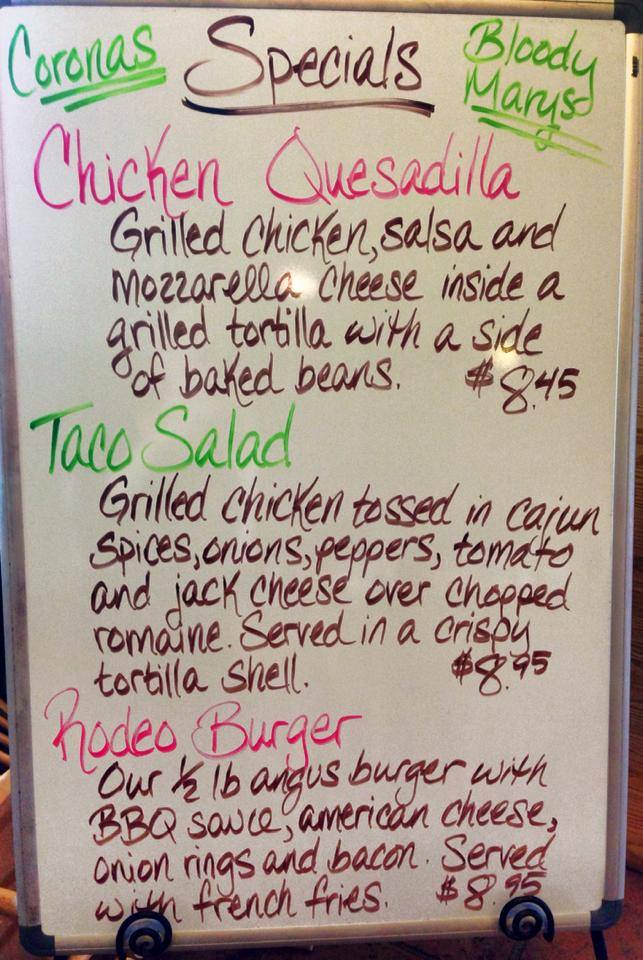 Coronas Specials Bloody Marys
Chicken Quesadilla
Grilled chicken, salsa and
mozzarella cheese inside a
grilled tortilla with a side
of baked beans. $8.45
Taco Salad
Grilled chicken tossed in cajun
spices, onions, peppers, tomato
and jack cheese over chopped
romaine. Served in a crispy
tortilla shell. $8.95
Rodeo Burger
Our 1/2 lb angus burger with
BBQ sauce, american cheese,
onion rings and bacon. Served
with french fries. $8.95